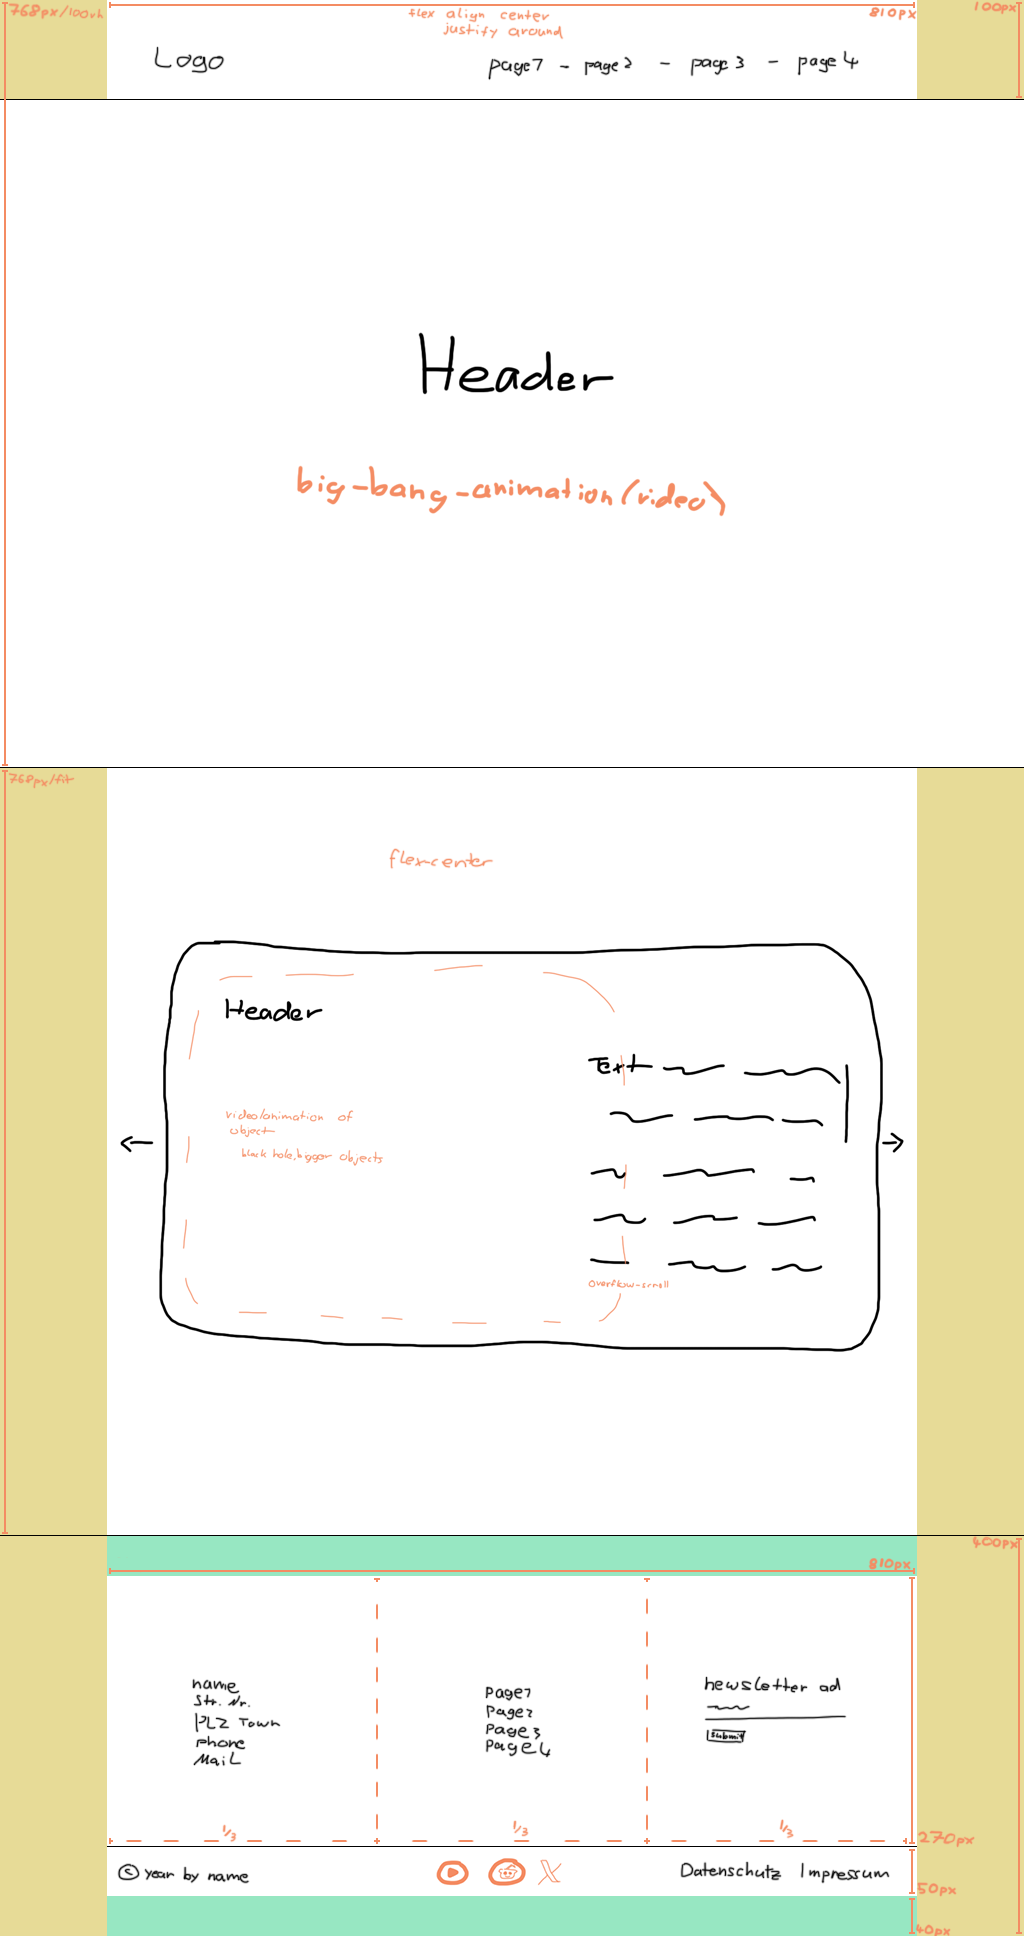 768px/100vh
flex align center
justify around
810px
100px
Logo
page1 - page2 - page3 - page4
Header
big-bang-animation(video)
768px/fit
flex-center
Header
Text
video/animation of
object
black hole, bigger objects
overflow-scroll
400px
810px
name
Str. Nr.
PLZ Town
phone
Mail
Page1
Page2
Page3
Page4
newsletter ad
submit
1/3
1/3
1/3
270px
© year by name
X
Datenschutz Impressum
50px
40px